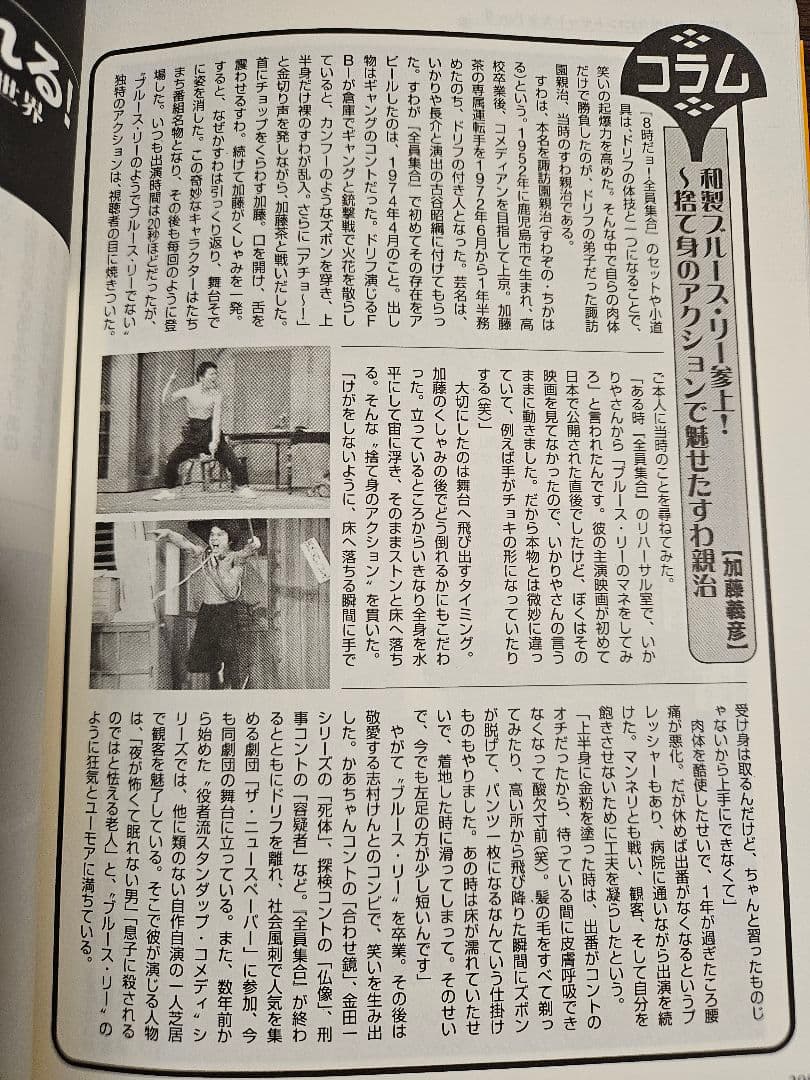 れる!
世界
コラム
和製ブルース・リー参上!
~捨て身のアクションで魅せたすわ親治
【加藤義彦】
『8時だョ!全員集合』のセットや小道
具は、ドリフの体技と一つになることで、
笑いの起爆力を高めた。そんな中で自らの肉体
だけで勝負したのが、ドリフの弟子だった諏訪
園親治、当時のすわ親治である。
すわは、本名を諏訪園親治(すわぞの・ちかは
る)という。1952年に鹿児島市で生まれ、高
校卒業後、コメディアンを目指して上京。加藤
茶の専属運転手を1972年6月から1年半務
めたのち、ドリフの付き人となった。芸名は、
いかりや長介と演出の古谷昭綱に付けてもらっ
た。すわが『全員集合』で初めてその存在をア
ピールしたのは、1974年4月のこと。出し
物はギャングのコントだった。ドリフ演じるF
BIが倉庫でギャングと銃撃戦で火花を散らし
ていると、カンフーのようなズボンを穿き、上
半身だけ裸のすわが乱入。さらに「アチョ~!」
と金切り声を発しながら、加藤茶と戦いだした。
首にチョップをくらわす加藤。口を開け、舌を
震わせるすわ。続けて加藤がくしゃみを一発。
すると、なぜかすわは引っくり返り、舞台そで
に姿を消した。この奇妙なキャラクターはたち
まち番組名物となり、その後も毎回のように登
場した。いつも出演時間は20秒ほどだったが、
〝ブルース・リーのようでブルース・リーでない〟
独特のアクションは、視聴者の目に焼きついた。
ご本人に当時のことを尋ねてみた。
「ある時『全員集合』のリハーサル室で、いか
りやさんから「ブルース・リーのマネをしてみ
ろ」と言われたんです。彼の主演映画が初めて
日本で公開された直後でしたけど、ぼくはその
映画を見てなかったので、いかりやさんの言う
ままに動きました。だから本物とは微妙に違っ
ていて、例えば手がチョキの形になっていたり
する(笑)」
大切にしたのは舞台へ飛び出すタイミング。
加藤のくしゃみの後でどう倒れるかにもこだわ
った。立っているところからいきなり全身を水
平にして宙に浮き、そのままストンと床へ落ち
る。そんな〝捨て身のアクション〟を貫いた。
「けがをしないように、床へ落ちる瞬間に手で
受け身は取るんだけど、ちゃんと習ったものじ
ゃないから上手にできなくて」
肉体を酷使したせいで、1年が過ぎたころ腰
痛が悪化。だが休めば出番がなくなるというプ
レッシャーもあり、病院に通いながら出演を続
けた。マンネリとも戦い、観客、そして自分を
飽きさせないために工夫を凝らしたという。
「上半身に金粉を塗った時は、出番がコントの
オチだったから、待っている間に皮膚呼吸でき
なくなって酸欠寸前(笑)。髪の毛をすべて剃っ
てみたり、高い所から飛び降りた瞬間にズボン
が脱げて、パンツ一枚になるなんていう仕掛け
ものもやりました。あの時は床が濡れていたせ
いで、着地した時に滑ってしまって。そのせい
で、今でも左足の方が少し短いんです」
やがて〝ブルース・リー〟を卒業。その後は
敬愛する志村けんとのコンビで、笑いを生み出
した。かあちゃんコントの「合わせ鏡」、金田一
シリーズの「死体」、探検コントの「仏像」、刑
事コントの「容疑者」など。『全員集合』が終わ
るとともにドリフを離れ、社会風刺で人気を集
める劇団「ザ・ニュースペーパー」に参加、今
も同劇団の舞台に立っている。また、数年前か
ら始めた〝役者流スタンダップ・コメディ〟シ
リーズでは、他に類のない自作自演の一人芝居
で観客を魅了している。そこで彼が演じる人物
は、「夜が怖くて眠れない男」「息子に殺される
のではと怯える老人」と、〝ブルース・リー〟の
ように狂気とユーモアに満ちている。